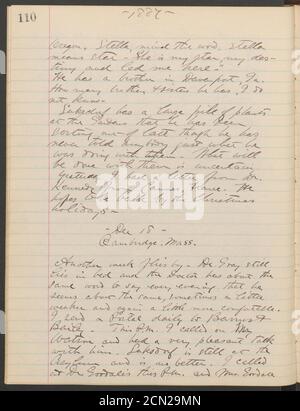 110
-1887-
Oregon, Stella, mind the word, Stella
means star - She is my star, my des-
tiny and led me here."
He has a brother in Davenport, Ia.
How many brothers, sisters he has, I do
not know -
Suksdorf has a large pile of plants
at the Garden that he has been
sorting out of late though he has
never told anybody just what he
was doing with them. What will
be done with them is uncertain -
Yesterday I had a letter from Mr.
Kennedy from Kansas. He
hopes to be back by the Christmas
holidays -
- Dec 18 -
Cambridge, Mass.
Another week flies by - Dr Gray still
lies in bed and the Doctor has about the
same word to say every evening that he
seems about the same, sometimes a little
weaker and again a little more comfortable.
I send a postal daily to
This P.M. I called on Mr.
Watson and had a very pleasant talk
with him. Suksdorf is still at the
Asylum and is no better. I called
at Dr Goodale's this P.M. and Mrs. Goodale
alamy
Image ID: 2CN29MN
www.alamy.com